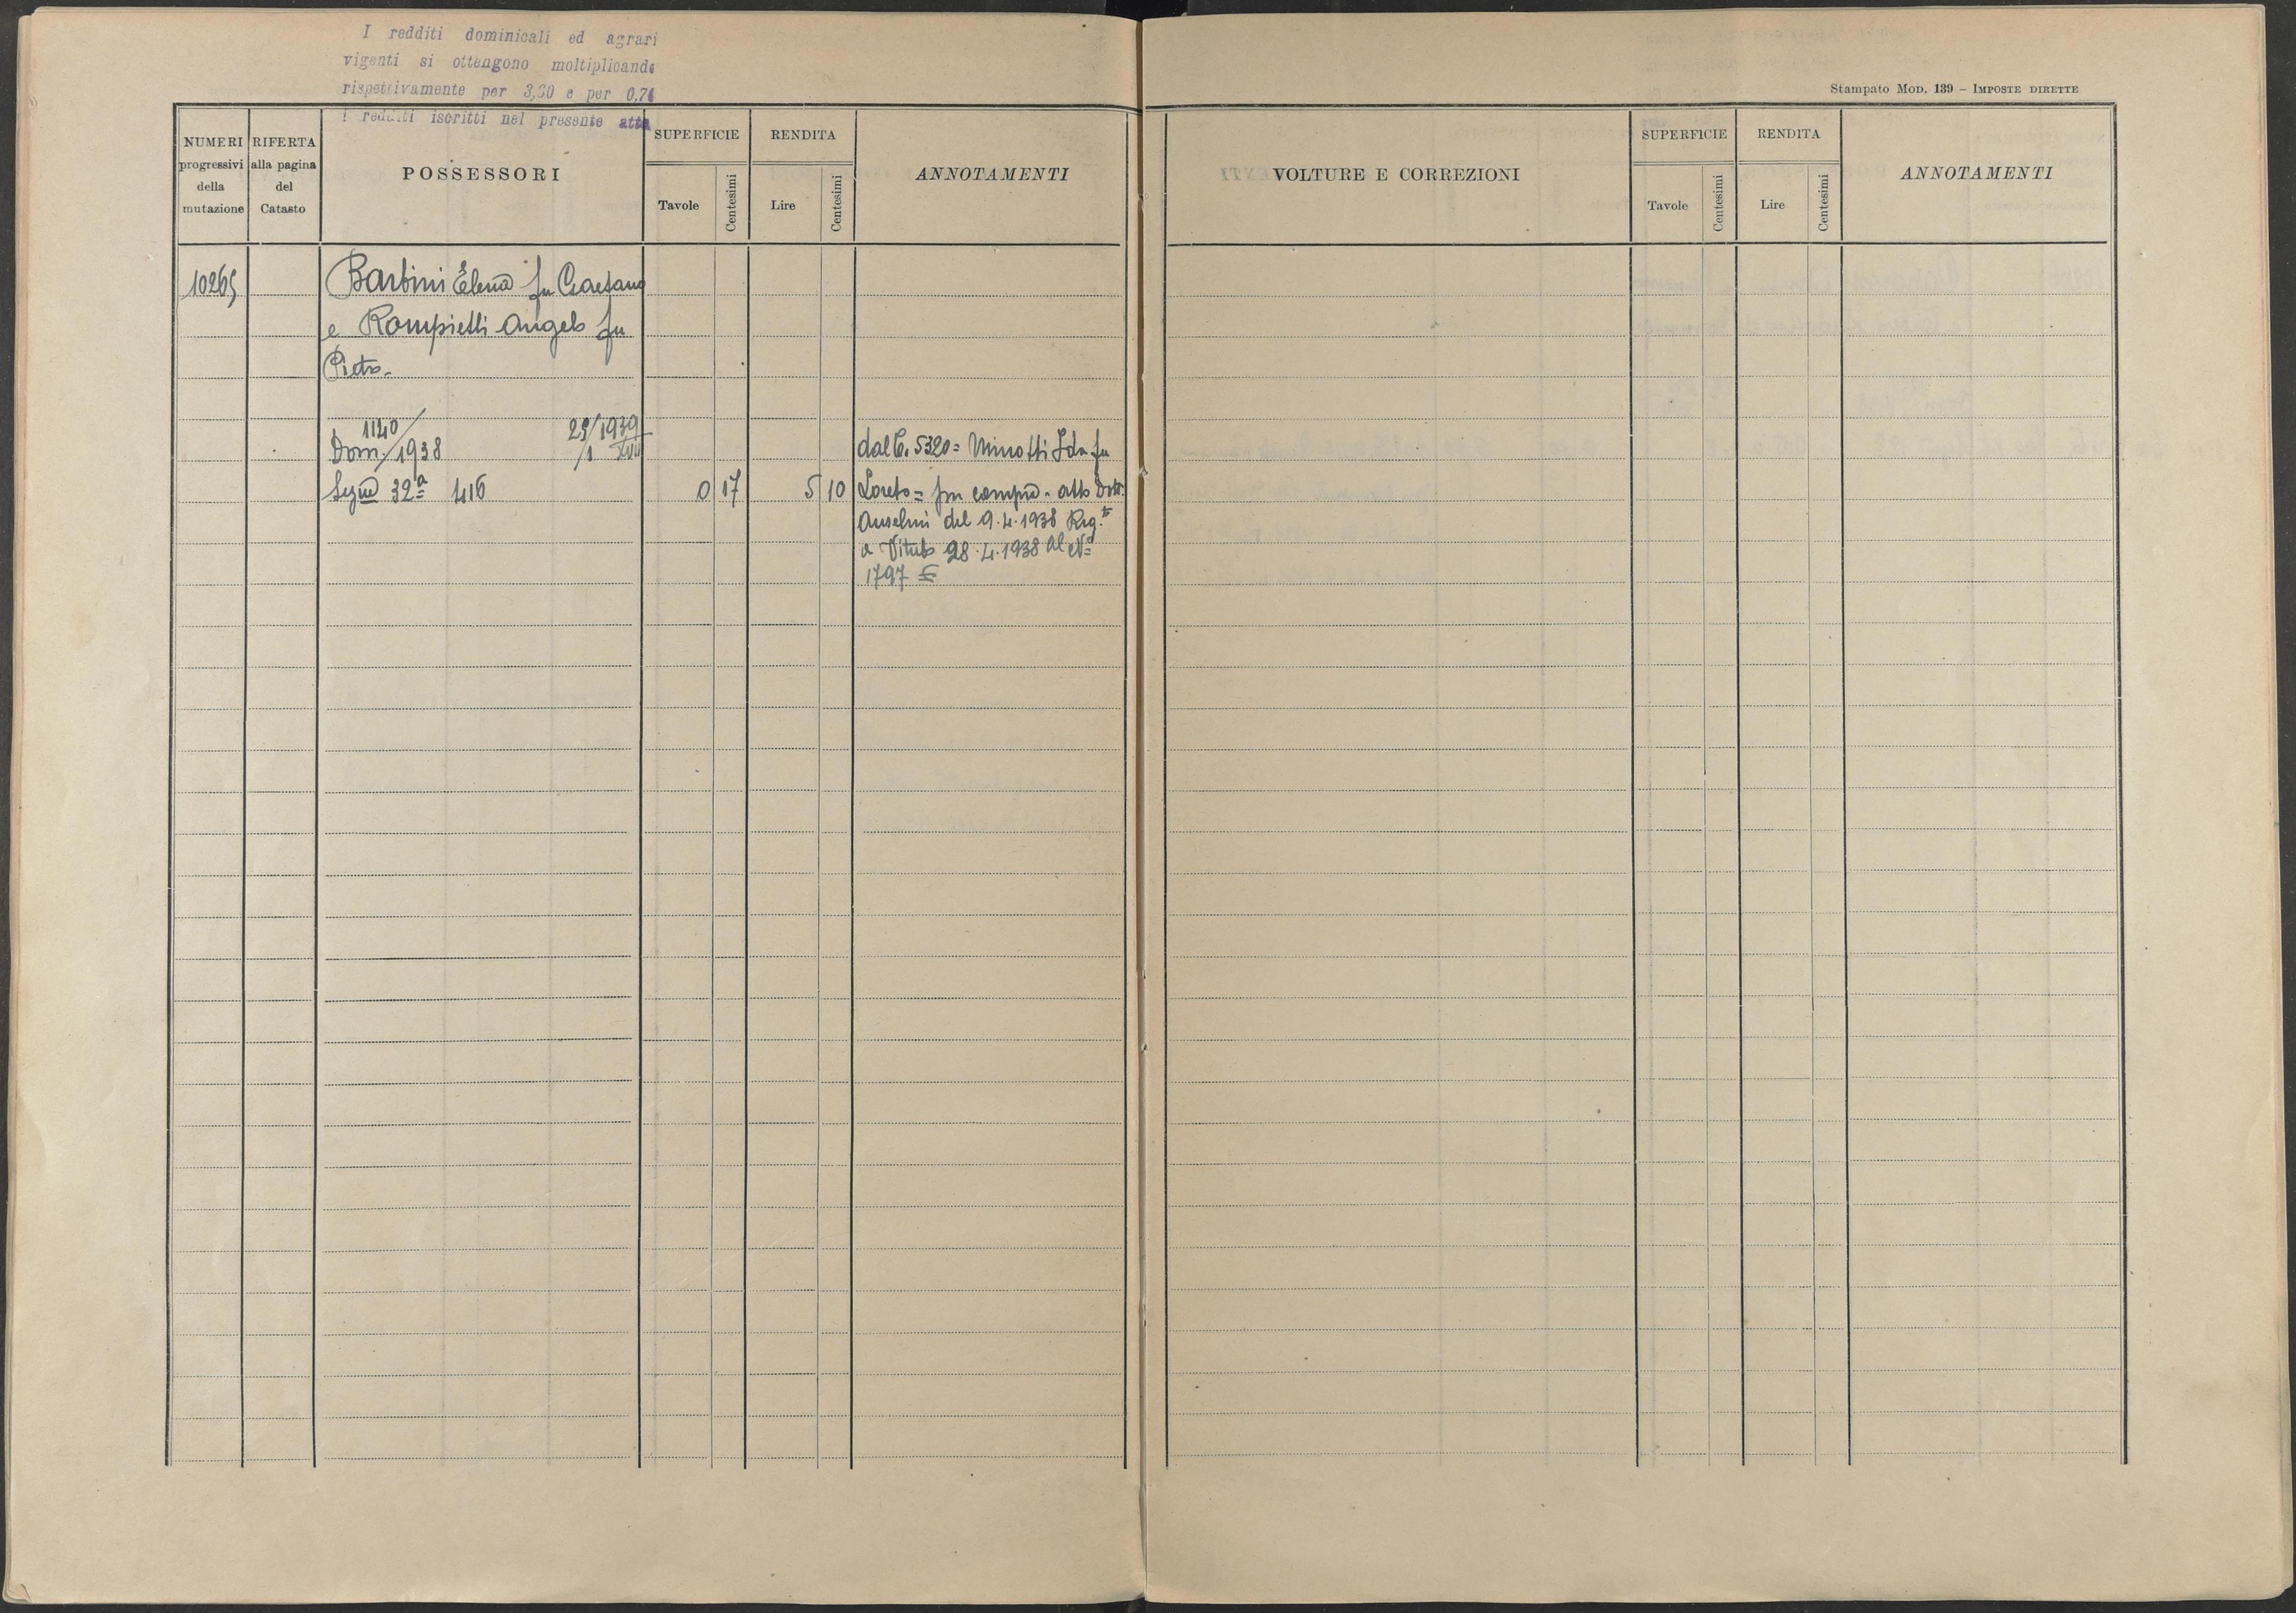 I redditi dominicali ed agrari
vigenti si ottengono moltiplicando
rispettivamente per 3,30 e per 0,74
I redditi iscritti nel presente atto
NUMERI progressivi della mutazione
RIFERTA alla pagina del Catasto
POSSESSORI
SUPERFICIE
Tavole
Centesimi
RENDITA
Lire
Centesimi
ANNOTAMENTI
10265
Barbini Elena fu Gaetano
e Rompietti Angelo fu
Pietro.
Dom. 1140/1938 29/1 1939 XVII
Segna 32ª 416 0 17 5 10
dal C. 5320 = Minotti Ida fu
Loreto = per compra - atto Dott.
Anselmi del 9.4.1938 Reg.to
a Viterbo 28.4.1938 al Nº
1797
Stampato Mod. 139 – Imposte dirette
VOLTURE E CORREZIONI
SUPERFICIE
Tavole
Centesimi
RENDITA
Lire
Centesimi
ANNOTAMENTI